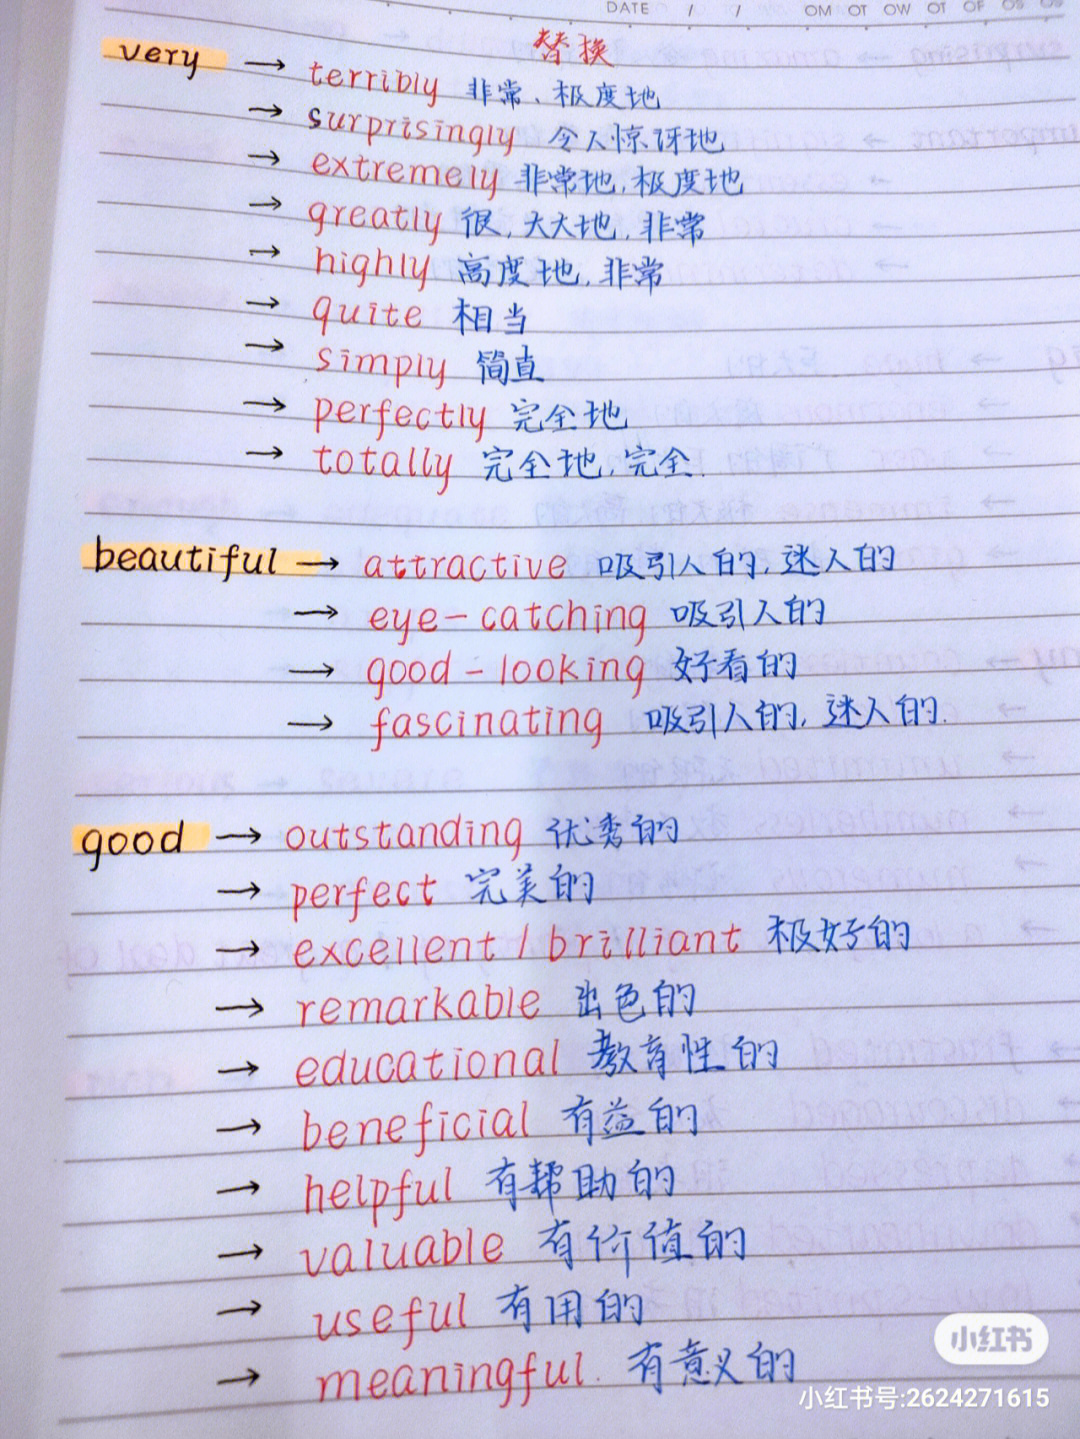 DATE / /
替换
very → terribly 非常、极度地
→ surprisingly 令人惊讶地
→ extremely 非常地,极度地
→ greatly 很,大大地,非常
→ highly 高度地,非常
→ quite 相当
→ simply 简直
→ perfectly 完全地
→ totally 完全地,完全.
beautiful → attractive 吸引人的,迷人的
→ eye-catching 吸引人的
→ good-looking 好看的
→ fascinating 吸引人的,迷人的.
good → outstanding 优秀的
→ perfect 完美的
→ excellent / brilliant 极好的
→ remarkable 出色的
→ educational 教育性的
→ beneficial 有益的
→ helpful 有帮助的
→ valuable 有价值的
→ useful 有用的
→ meaningful. 有意义的
小红书
小红书号:2624271615